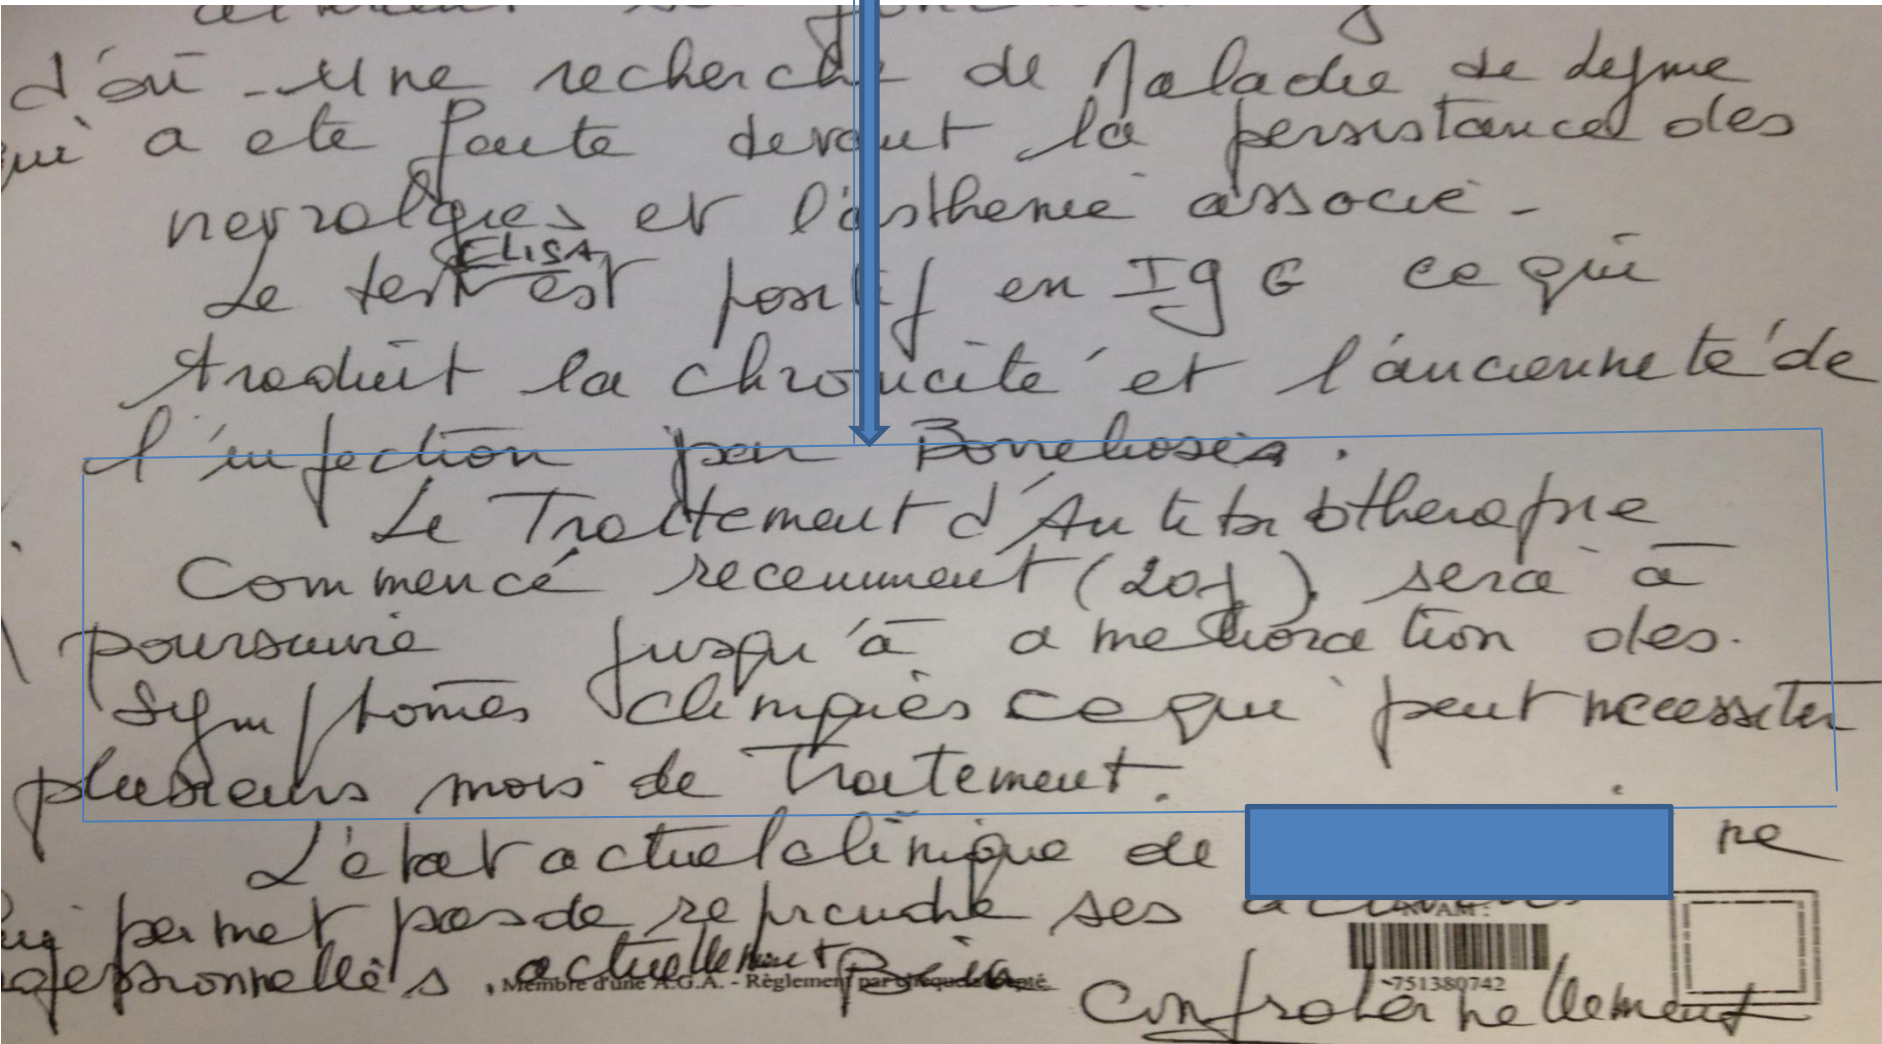 d'où - Une recherche de Maladie de Lyme
qui a ete faite devant la persistance des
nevralgies et l'asthenie associé -
ELISA
Le test est positif en IgG ce qui
traduit la chronicité et l'ancienneté de
l'infection par Borreliosis.
Le Traitement d'Antibiotherapie
Commencé recemment (20j) sera à
poursuivre jusqu'à amelioration des
symptomes cliniques ce qui peut necessiter
plusieurs mois de Traitement.
L'état actuel clinique de ne
lui permet pas de reprendre ses
professionnelles, actuellement Bien
Membre d'une A.G.A. - Règlement par chèque accepté.
~751380742
Confraternellement